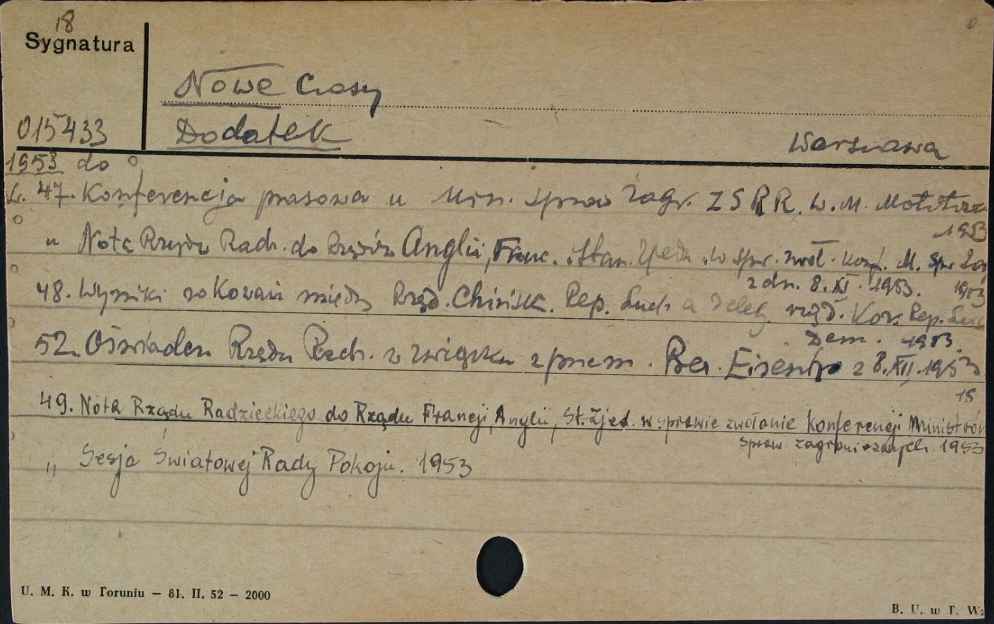 18
Sygnatura
Nowe Czasy
015433
Dodatek
Warszawa
1953 do
47. Konferencja prasowa u Min. Spraw Zagr. ZSRR. W. M. Mołotowa
1953
„ Nota Rządu Radz. do Rządów Anglii, Franc. i Stan. Zjedn. w spr. zwoł. konf. M. Spr. Zagr
z dn. 8. XI. 1953. 1953
48. Wyniki rokowań między Rząd. Chińsk. Rep. Lud. a deleg. rząd. Kor. Rep. Lud
Dem. 1953.
52. Oświadcz. Rządu Radz. w związku z przem. Prez. Eisenh. z 8. XII. 1953
15
49. Nota Rządu Radzieckiego do Rządu Francji, Anglii, St. Zjed. w sprawie zwołanie Konferencji Ministrów
spraw zagranicznych. 1953
„ Sesja Światowej Rady Pokoju. 1953
U. M. K. w Toruniu — 81. II. 52 — 2000
B. U. w T. W